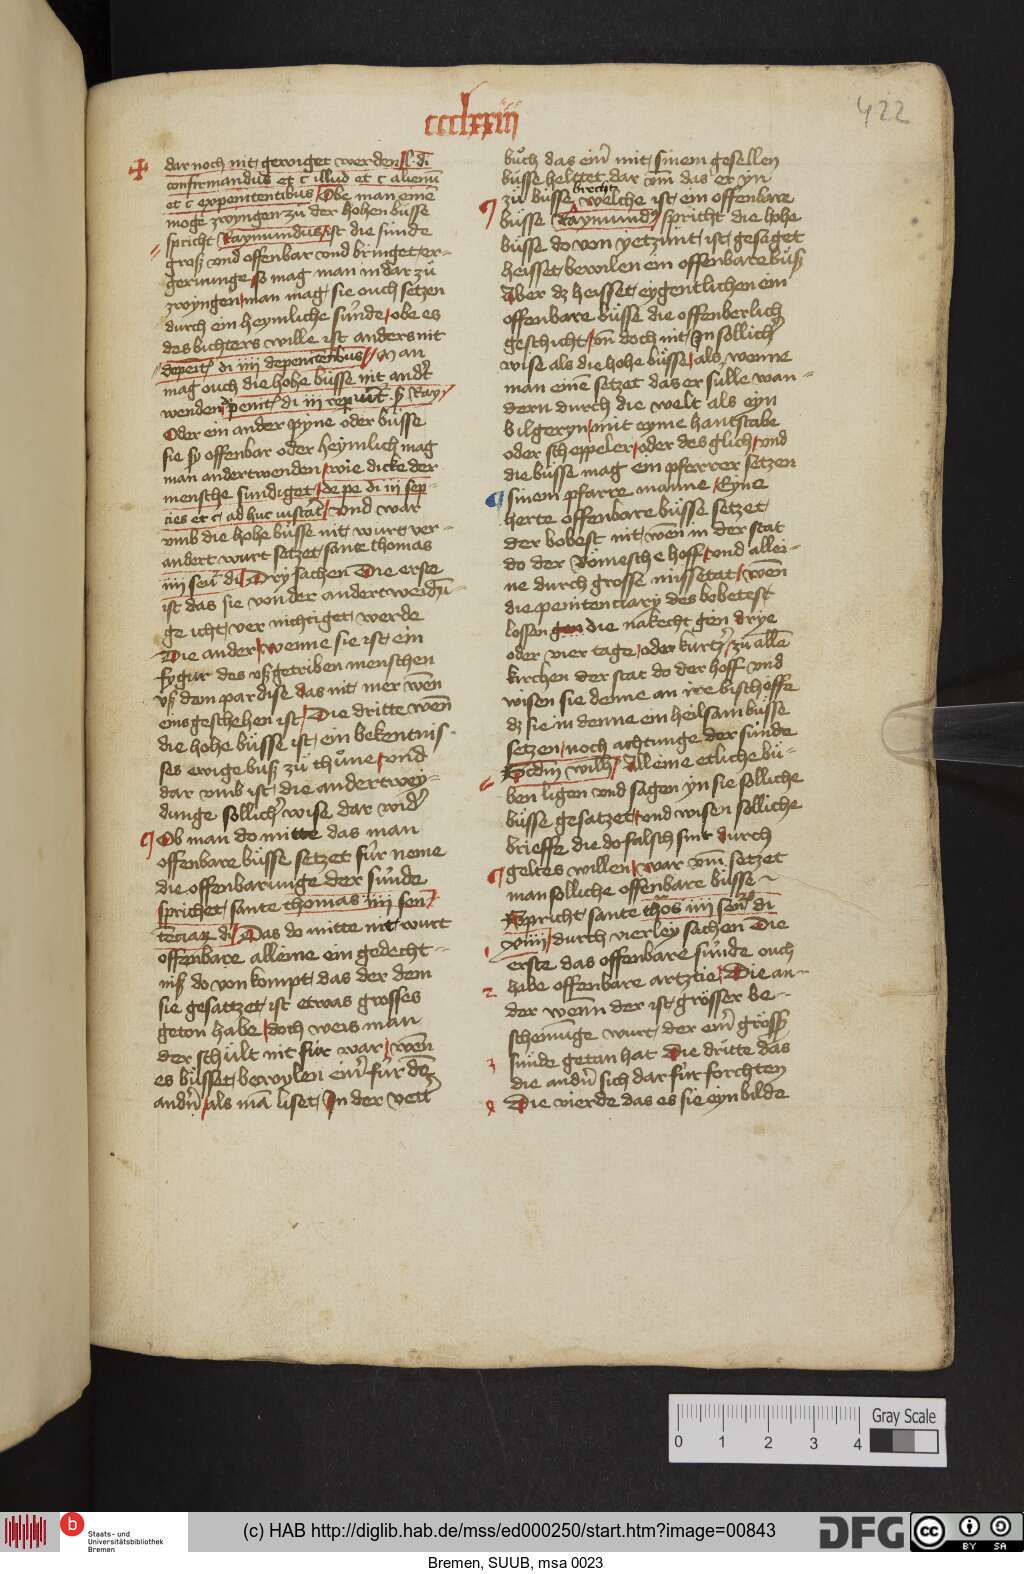 ccclxxiiij
422
dar noch nit gewiget werden l. d.
confirmandus et c illud et c alienū
et c expenitentibus Obe man einē
moge zwyngen zu der hohen büsse
spricht Raymundus ist die sünde
groß vnd offenbar vnd bringet er-
gerunge so mag man in dar zů
zwyngen man mag sie ouch setzen
durch ein heymliche sünde obe es
des bichters wille ist anders nit
di iiii depenitentibus Man
mag ouch die hohe büsse nit andͤr
wenden penit di iii Ray
Oder ein ander pyne oder büsse
sie sy offenbar oder heymlich mag
man andertwenden wie dicke der
mensche sundiget de pe di iii sep-
cies et c ad huc instāt vnd war
vmb die hohe büsse nit wurt ver-
andert wurt setzet sante thomas
iiii sen di Dry sachen Die erste
ist das sie von der andertweidū-
ge icht ver nichtiget werde
Die ander wenne sie ist ein
fygur des vßgetriben menschen
vß dem pardise das nit mer wen
eins geschehen ist Die dritte wen
die hohe büsse ist ein bekentnis-
ses ewige buß zů thůne vnd
dar vmb ist die andertwey-
dunge sollich wise dar wid
Ob man do mitte das man
offenbare büsse setzet für neme
die offenbarunge der sünde
sprichet sante thomas iiii sen
Das do mitte nit wurt
offenbare alleine ein gedecht-
niß do von kompt das der dem
sie gesatzet ist etwas grosses
geton habe doch weis man
der schült nit für war wen
es büsset bewylen eim für dē
andn als mā liset In der vett
bůch das eim mit sinem gesellen
büsse helttet dar vm das er yn
brecht
zů büsse welche ist ein offenbare
büsse Raymund spricht die hohe
büsse do von yetzunt ist gesaget
heisset bewilen ein offenbare bůß
Aber dz heisset eygentlichen ein
offenbare büsse die offenberlich
geschicht vn doch nit In sollich
wise als die hohe büsse als wenne
man eine setzet das er sulle wan-
dern durch die welt als eyn
bilgeryn mit eyme hantstabe
oder scheppeler oder des glich vnd
die büsse mag ein pfarrer setzen
sinem pfarre manne Eyne
herte offenbare büsse setzet
der bobest nit wen in der stat
do der Römesche hoff vnd allei-
ne durch grosse missetat wen
die penitenciary des bobetest
lossen gon die nakecht gen drye
oder vier tage oder kurtz zu alle
kirchen der stat do der hoff vnd
wisen sie denne an ire bischöffe
dz sie in denne ein heilsam büsse
setzen noch achtunge der sünde
wilh Alleine etliche bü-
ben ligen vnd sagen yn sie solliche
büsse gesatzet vnd wisen solliche
brieffe die do falsch sint durch
geltes willen war vm setzet
man solliche offenbare büsse
Spricht sante thos iiii sen di
xiiii durch vierley sachen Die
1
erste das offenbare sünde ouch
2
habe offenbare artztie Die an-
der wenn der ist grösser be-
scheinunge wurt der eim gröss
3
sünde getan hat Die dritte das
die andn sich dar fur forchten
4
Die vierde das es sie eyn bilde
Gray Scale
0 1 2 3 4
b
Staats- und
Universitätsbibliothek
Bremen
(c) HAB http://diglib.hab.de/mss/ed000250/start.htm?image=00843
DFG
cc
BY SA
Bremen, SUUB, msa 0023